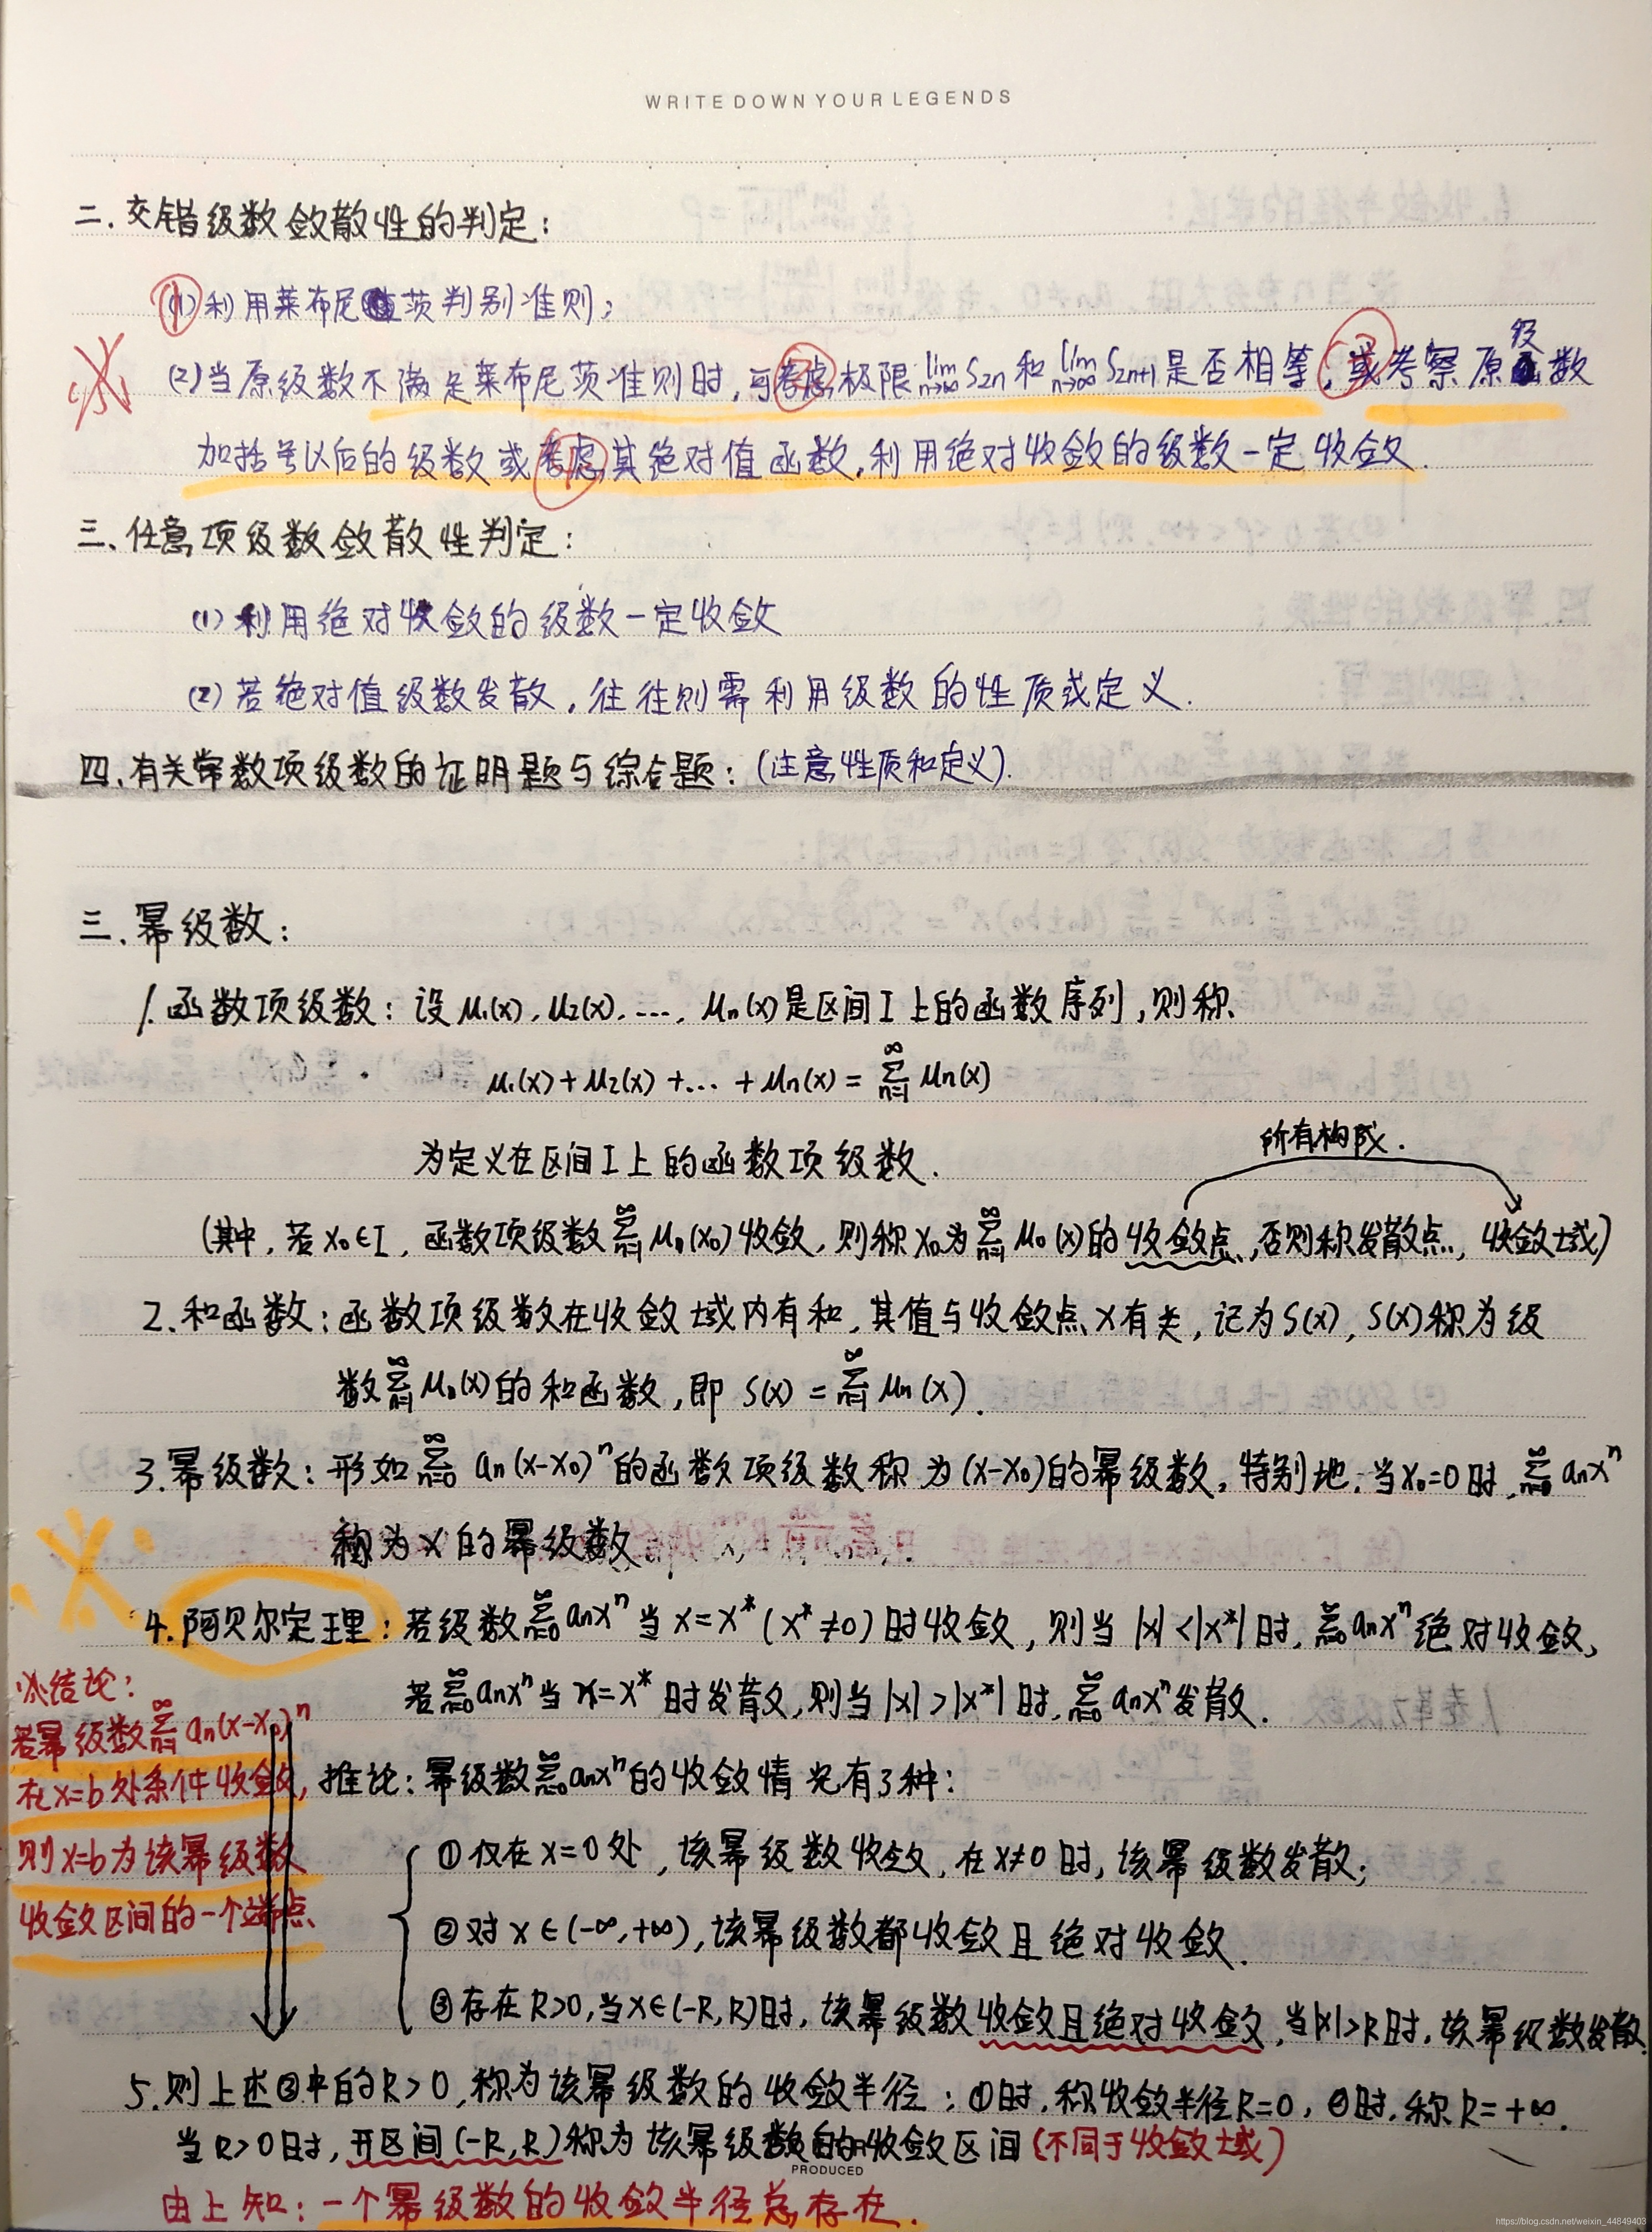 WRITE DOWN YOUR LEGENDS
二.交错级数敛散性的判定:
(1)利用莱布尼茨判别准则;
(2)当原级数不满足莱布尼茨准则时,可考虑极限 lim n→∞ S2n 和 lim n→∞ S2n+1 是否相等,或考察原级数
加括号以后的级数或考虑其绝对值函数,利用绝对收敛的级数一定收敛.
三、任意项级数敛散性判定:
(1)利用绝对收敛的级数一定收敛
(2)若绝对值级数发散,往往则需利用级数的性质或定义.
四.有关常数项级数的证明题与综合题:(注意性质和定义).
三.幂级数:
1.函数项级数:设 μ₁(x),μ₂(x),…,μn(x)是区间I上的函数序列,则称
μ₁(x)+μ₂(x)+…+μn(x)=∑(n=1→∞) μn(x)
为定义在区间I上的函数项级数.
所有构成.
(其中,若x₀∈I,函数项级数∑(n=1→∞) μn(x₀)收敛,则称x₀为∑(n=1→∞) μn(x)的收敛点,否则称发散点,收敛域)
2.和函数:函数项级数在收敛域内有和,其值与收敛点x有关,记为S(x),S(x)称为级
数∑(n=1→∞) μn(x)的和函数,即 S(x)=∑(n=1→∞) μn(x).
3.幂级数:形如∑(n=0→∞) an(x-x₀)ⁿ的函数项级数称为(x-x₀)的幂级数,特别地.当x₀=0时,∑(n=0→∞) anxⁿ
称为x的幂级数.
4.阿贝尔定理:若级数∑(n=0→∞) anxⁿ当x=x*(x*≠0)时收敛,则当|x|<|x*|时,∑(n=0→∞) anxⁿ绝对收敛,
若∑(n=0→∞) anxⁿ当x=x*时发散,则当|x|>|x*|时,∑(n=0→∞) anxⁿ发散.
※结论:
若幂级数∑(n=1→∞) an(x-x₀)ⁿ
在x=b处条件收敛,
则x=b为该幂级数
收敛区间的一个端点
推论:幂级数∑(n=0→∞) anxⁿ的收敛情况有3种:
①仅在x=0处,该幂级数收敛,在x≠0时,该幂级数发散;
②对x∈(-∞,+∞),该幂级数都收敛且绝对收敛.
③存在R>0,当x∈(-R,R)时,该幂级数收敛且绝对收敛,当|x|>R时,该幂级数发散.
5.则上述③中的R>0,称为该幂级数的收敛半径;①时,称收敛半径R=0,②时,称R=+∞.
当R>0时,开区间(-R,R)称为该幂级数的收敛区间(不同于收敛域)
PRODUCED
由上知:一个幂级数的收敛半径总存在.
https://blog.csdn.net/weixin_44849403